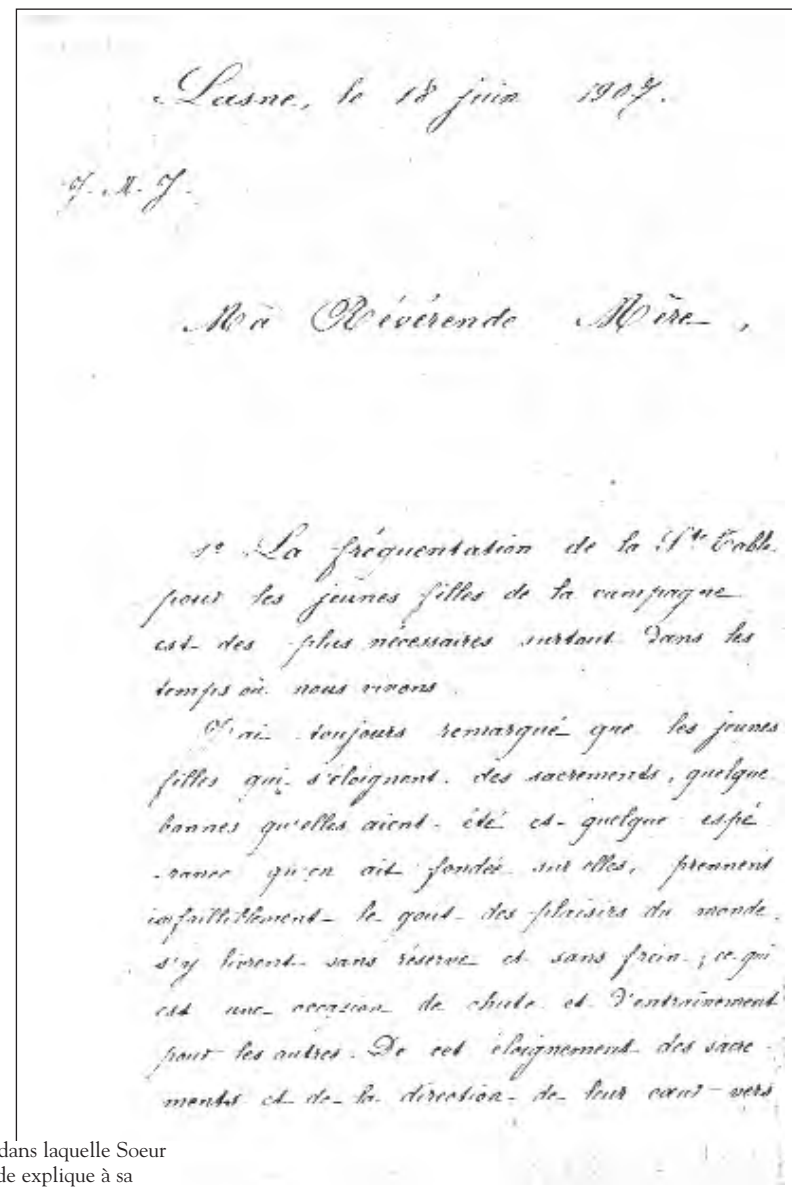 Lasne, le 18 juin 1907.
J. M. J.
Ma Révérende Mère,
1º La fréquentation de la Ste Table
pour les jeunes filles de la campagne
est des plus nécessaires surtout dans les
temps où nous vivons.
J'ai toujours remarqué que les jeunes
filles qui s'éloignent des sacrements, quelque
bonnes qu'elles aient été et quelque espé
-rance qu'on ait fondée sur elles, prennent
infailliblement le goût des plaisirs du monde,
s'y livrent sans réserve et sans frein ; ce qui
est une occasion de chute et d'entraînement
pour les autres. De cet éloignement des sacre-
ments et de la direction de leur cœur vers
dans laquelle Soeur
de explique à sa